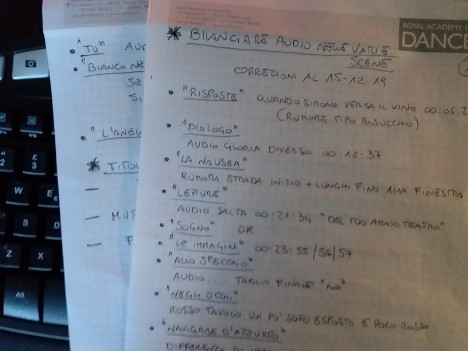 ROYAL ACADEMY O
DANCE
* BILANCIARE AUDIO NELLE VARIE
SCENE
CORREZIONI AL 15-12-19
• "RISPOSTE" QUANDO SIMONA VERSA IL VINO 00:05:2
(RUMORE TIPO RISUCCHIO)
• "DIALOGO"
AUDIO GLORIA DIVERSO 00:12:37
• "LA NAUSEA"
RUMORI STRADA INIZIO + LUNGHI FINO ALLA FINESTRA
• "LETTURE"
AUDIO SALTA 00:21:34 "DEL TUO AMATO TEATRO"
• "SOGNO" OK
• "LE IMMAGINI" 00:23:55/56/57
• "ALLO SPECCHIO"
AUDIO .... TAGLIO FINALE "NO"
• "NEGLI OCCHI"
ROSSO TAVOLO UN PO' SOVRO ESPOSTO E POCO ROSSO
• "NAVIGARE D'AZZURRO"
• "TU" AUD
• "BIANCO NE
• "L'ANGU
* TITOL